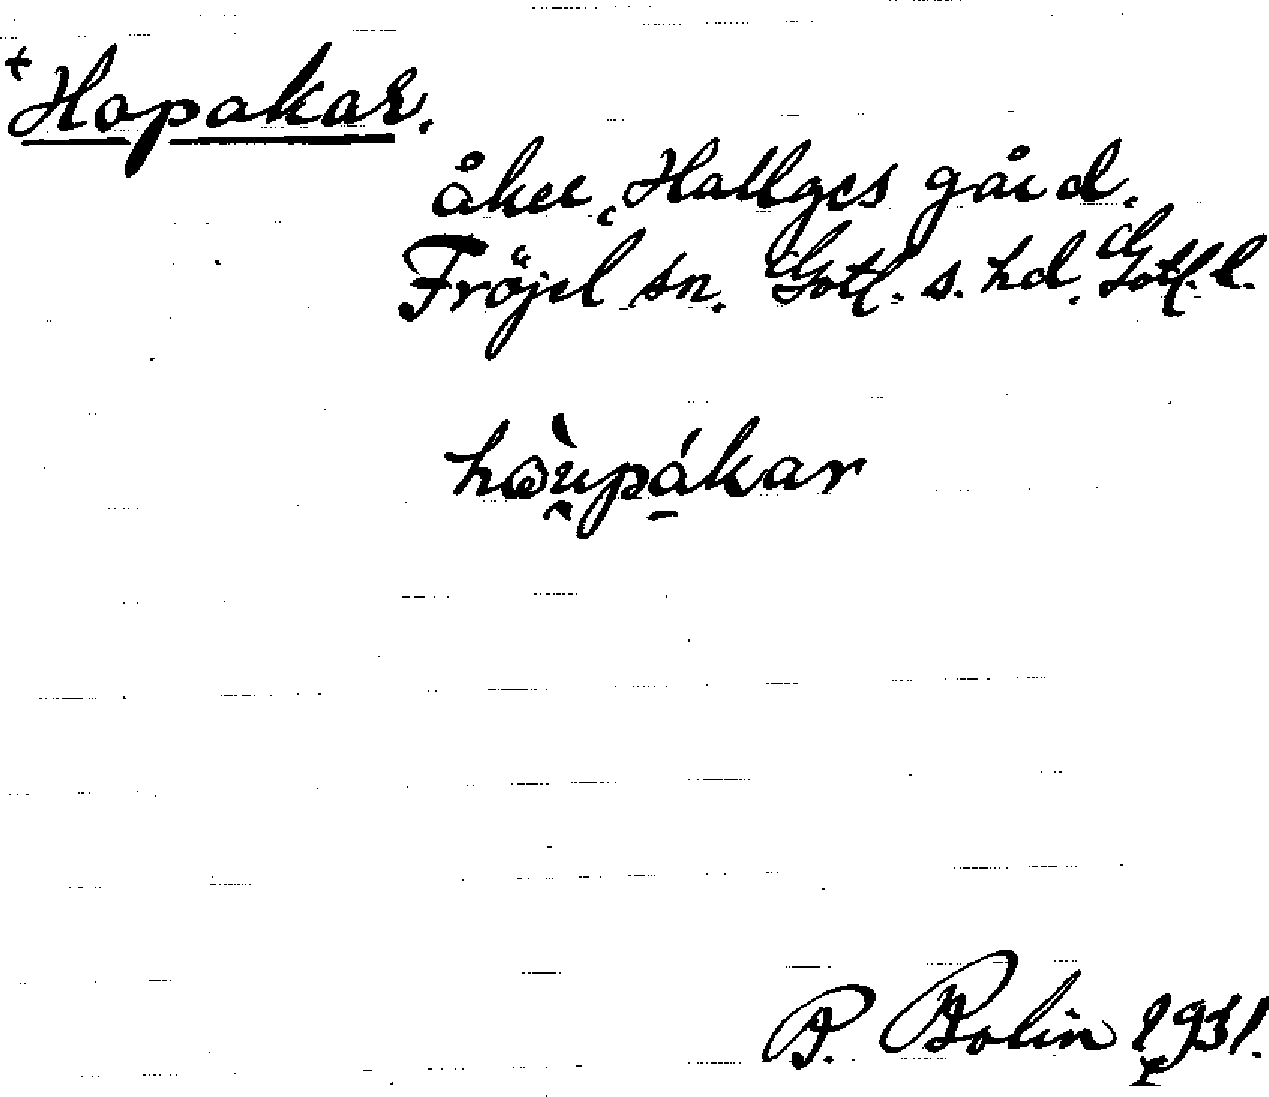 +Hopakar.
åker, Hallges gård.
Fröjel sn. Gotl. s. hd. Gotl. l.
hòupákar
P. Bolin 1931.